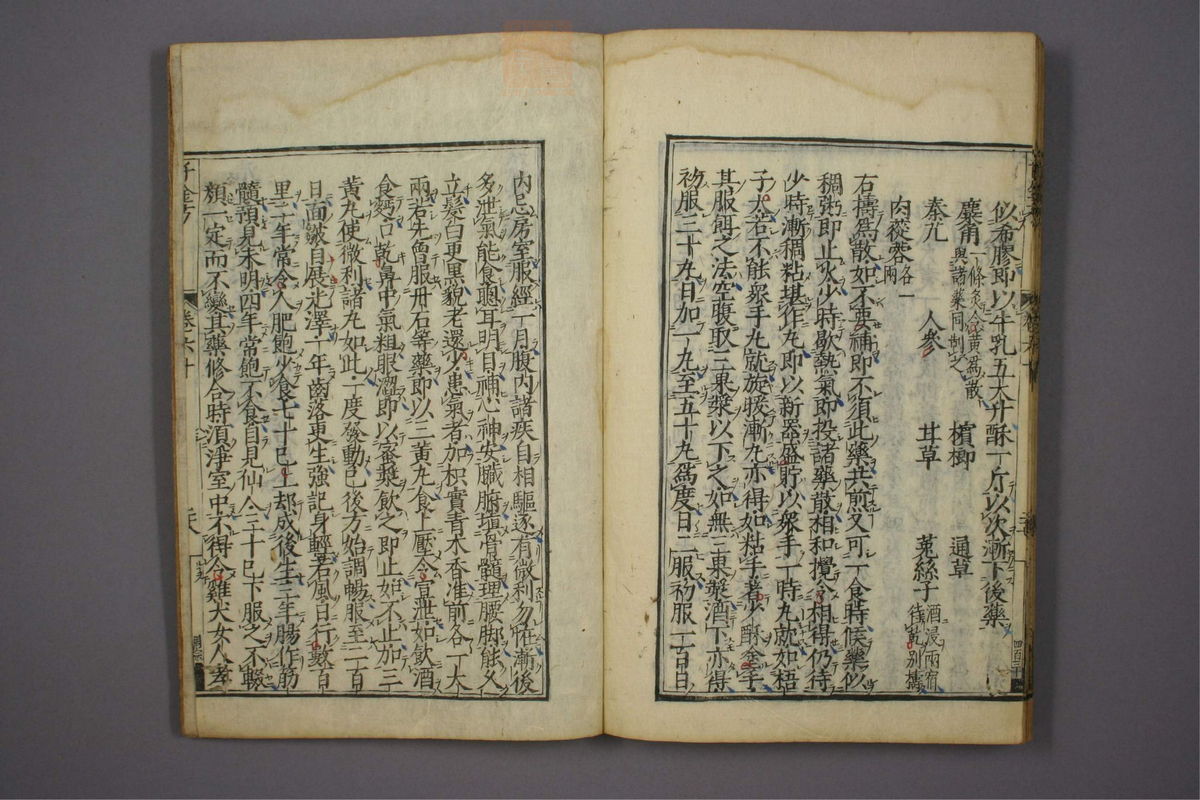 似希膠即以牛乳五大升酥一斤以次漸下後藥
麋角一條炙令黃爲散與諸藥同制之 檳榔 通草
秦艽 人參 甘草 菟絲子酒浸兩宿待乾別擣
肉蓯蓉各一兩
右擣爲散如不要補即不須此藥共煎又可一食時候藥似
稠粥即止火少時歇熱氣即投諸藥散相和攪令相得仍待
少時漸稠粘堪作丸即以新器盛貯以衆手一時丸就如梧
子大若不能衆手丸就旋暖漸丸亦得如粘手著少酥塗手
其服餌之法空腹取三果漿以下之如無三果漿酒下亦得
初服三十丸日加一丸至五十丸爲度日二服初服一百日
內忌房室服經一月腹內諸疾自相驅逐有微利勿怪漸後
多泄氣能食聰耳明目補心神安臟腑塡骨髓理腰脚能久
立髮白更黑貌老還少患氣者加枳實青木香准前各一大
兩若先曾服丹石等藥即以三黃丸食上壓令宣泄如飲酒
食麪口乾鼻中氣粗眼澀即以蜜漿飲之即止如不止加三
黃丸使微利諸丸如此一度發動已後方始調暢服至二百
日面皺自展光澤一年齒落更生強記身輕若風日行數百
里二年常令人肥飽少食七十已上却成後生三年腸作筋
髓預見未明四年常飽不食自見仙人三十已下服之不輟
顏一定而不變其藥修合時須淨室中不得令雞犬女人孝
千金方
卷六十